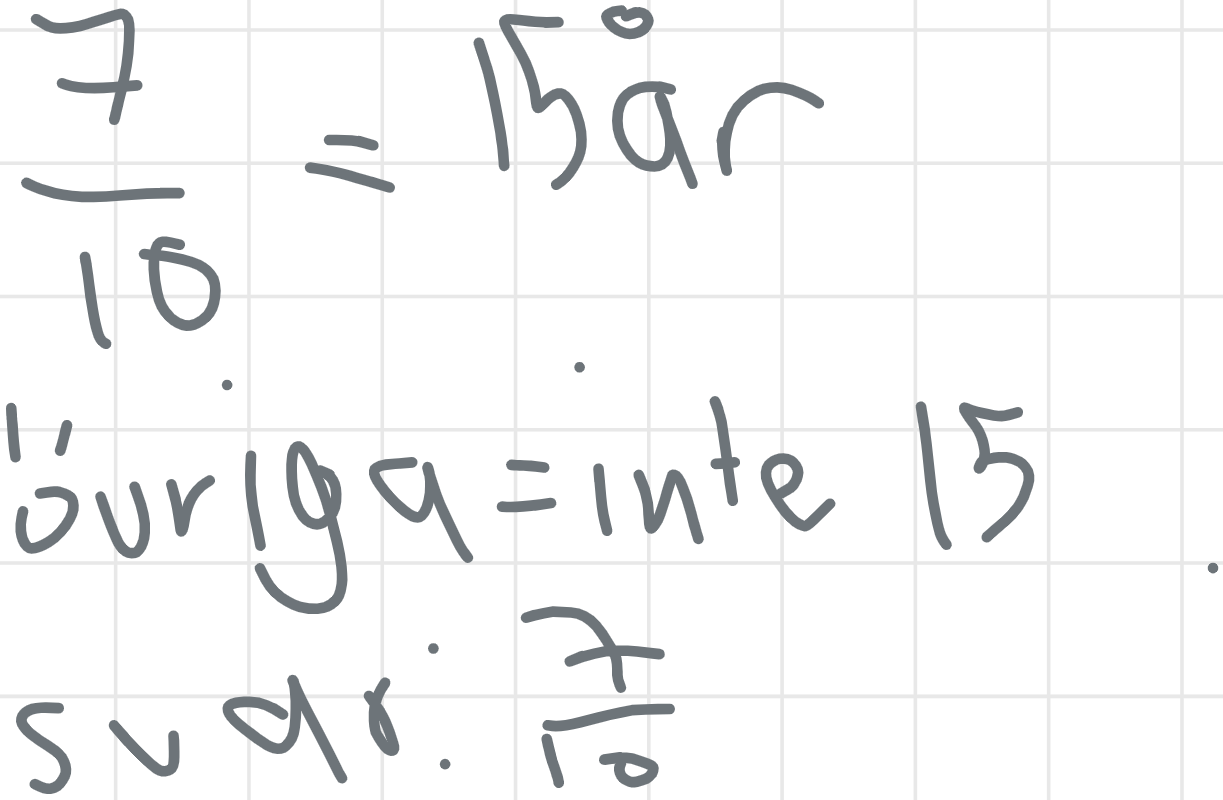 7/10 = 15 år
övriga = inte 15
svar: 7/10